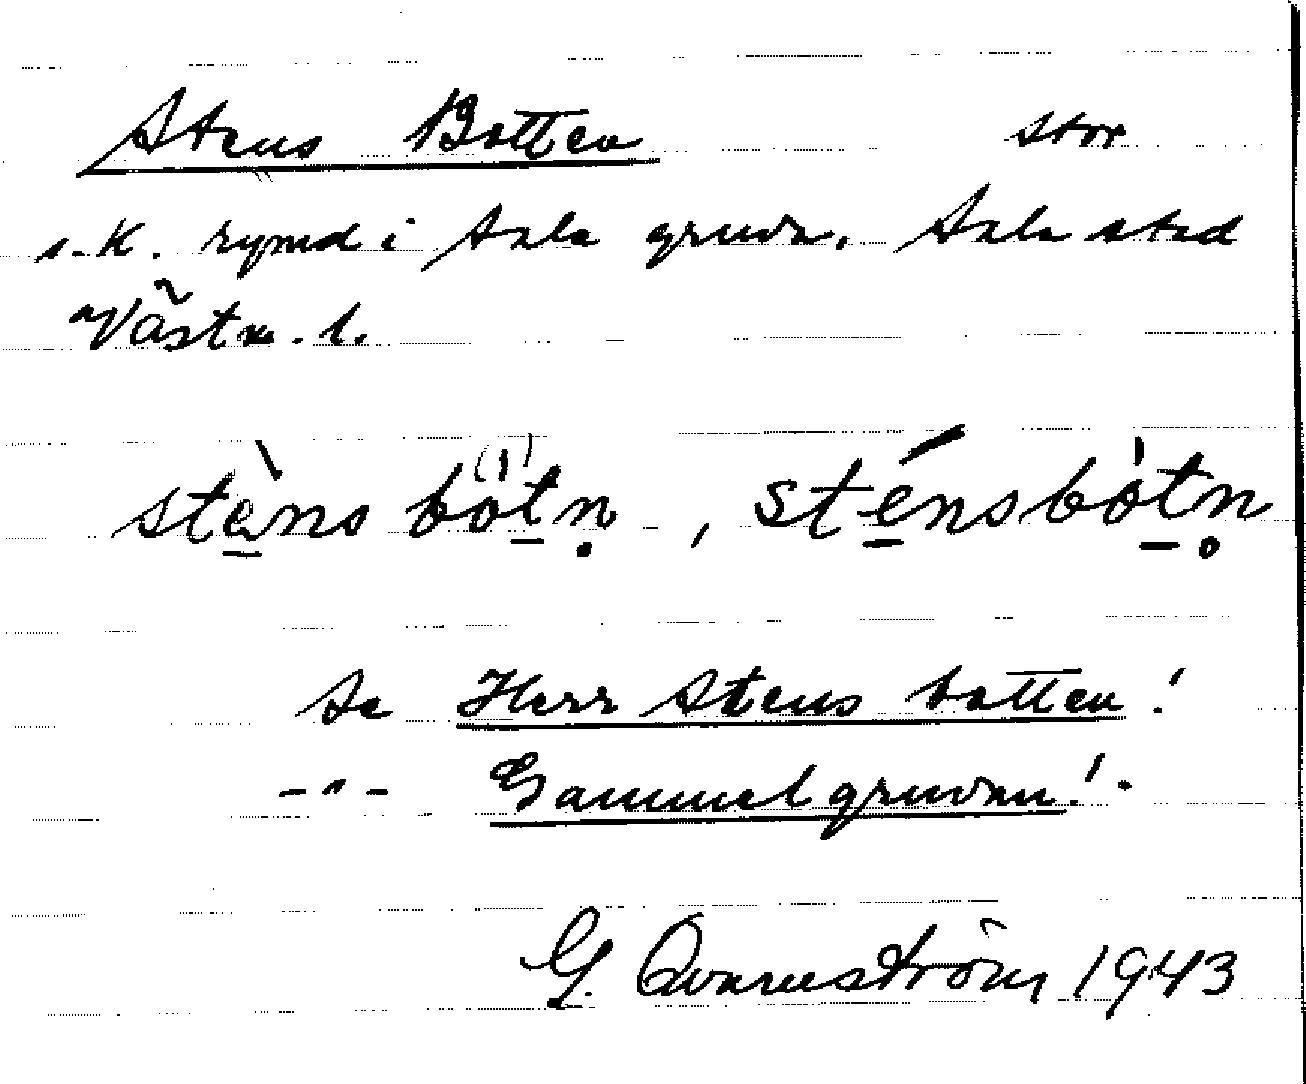 Stens Botten stor
s.k. rymd i Sala gruva. Sala stad
Västm. l.
stèns bòtn̥, sténsbòtn̥
Se Herr Stens botten!
-"- Gammelgruvan!.
G. Qvarnström 1943